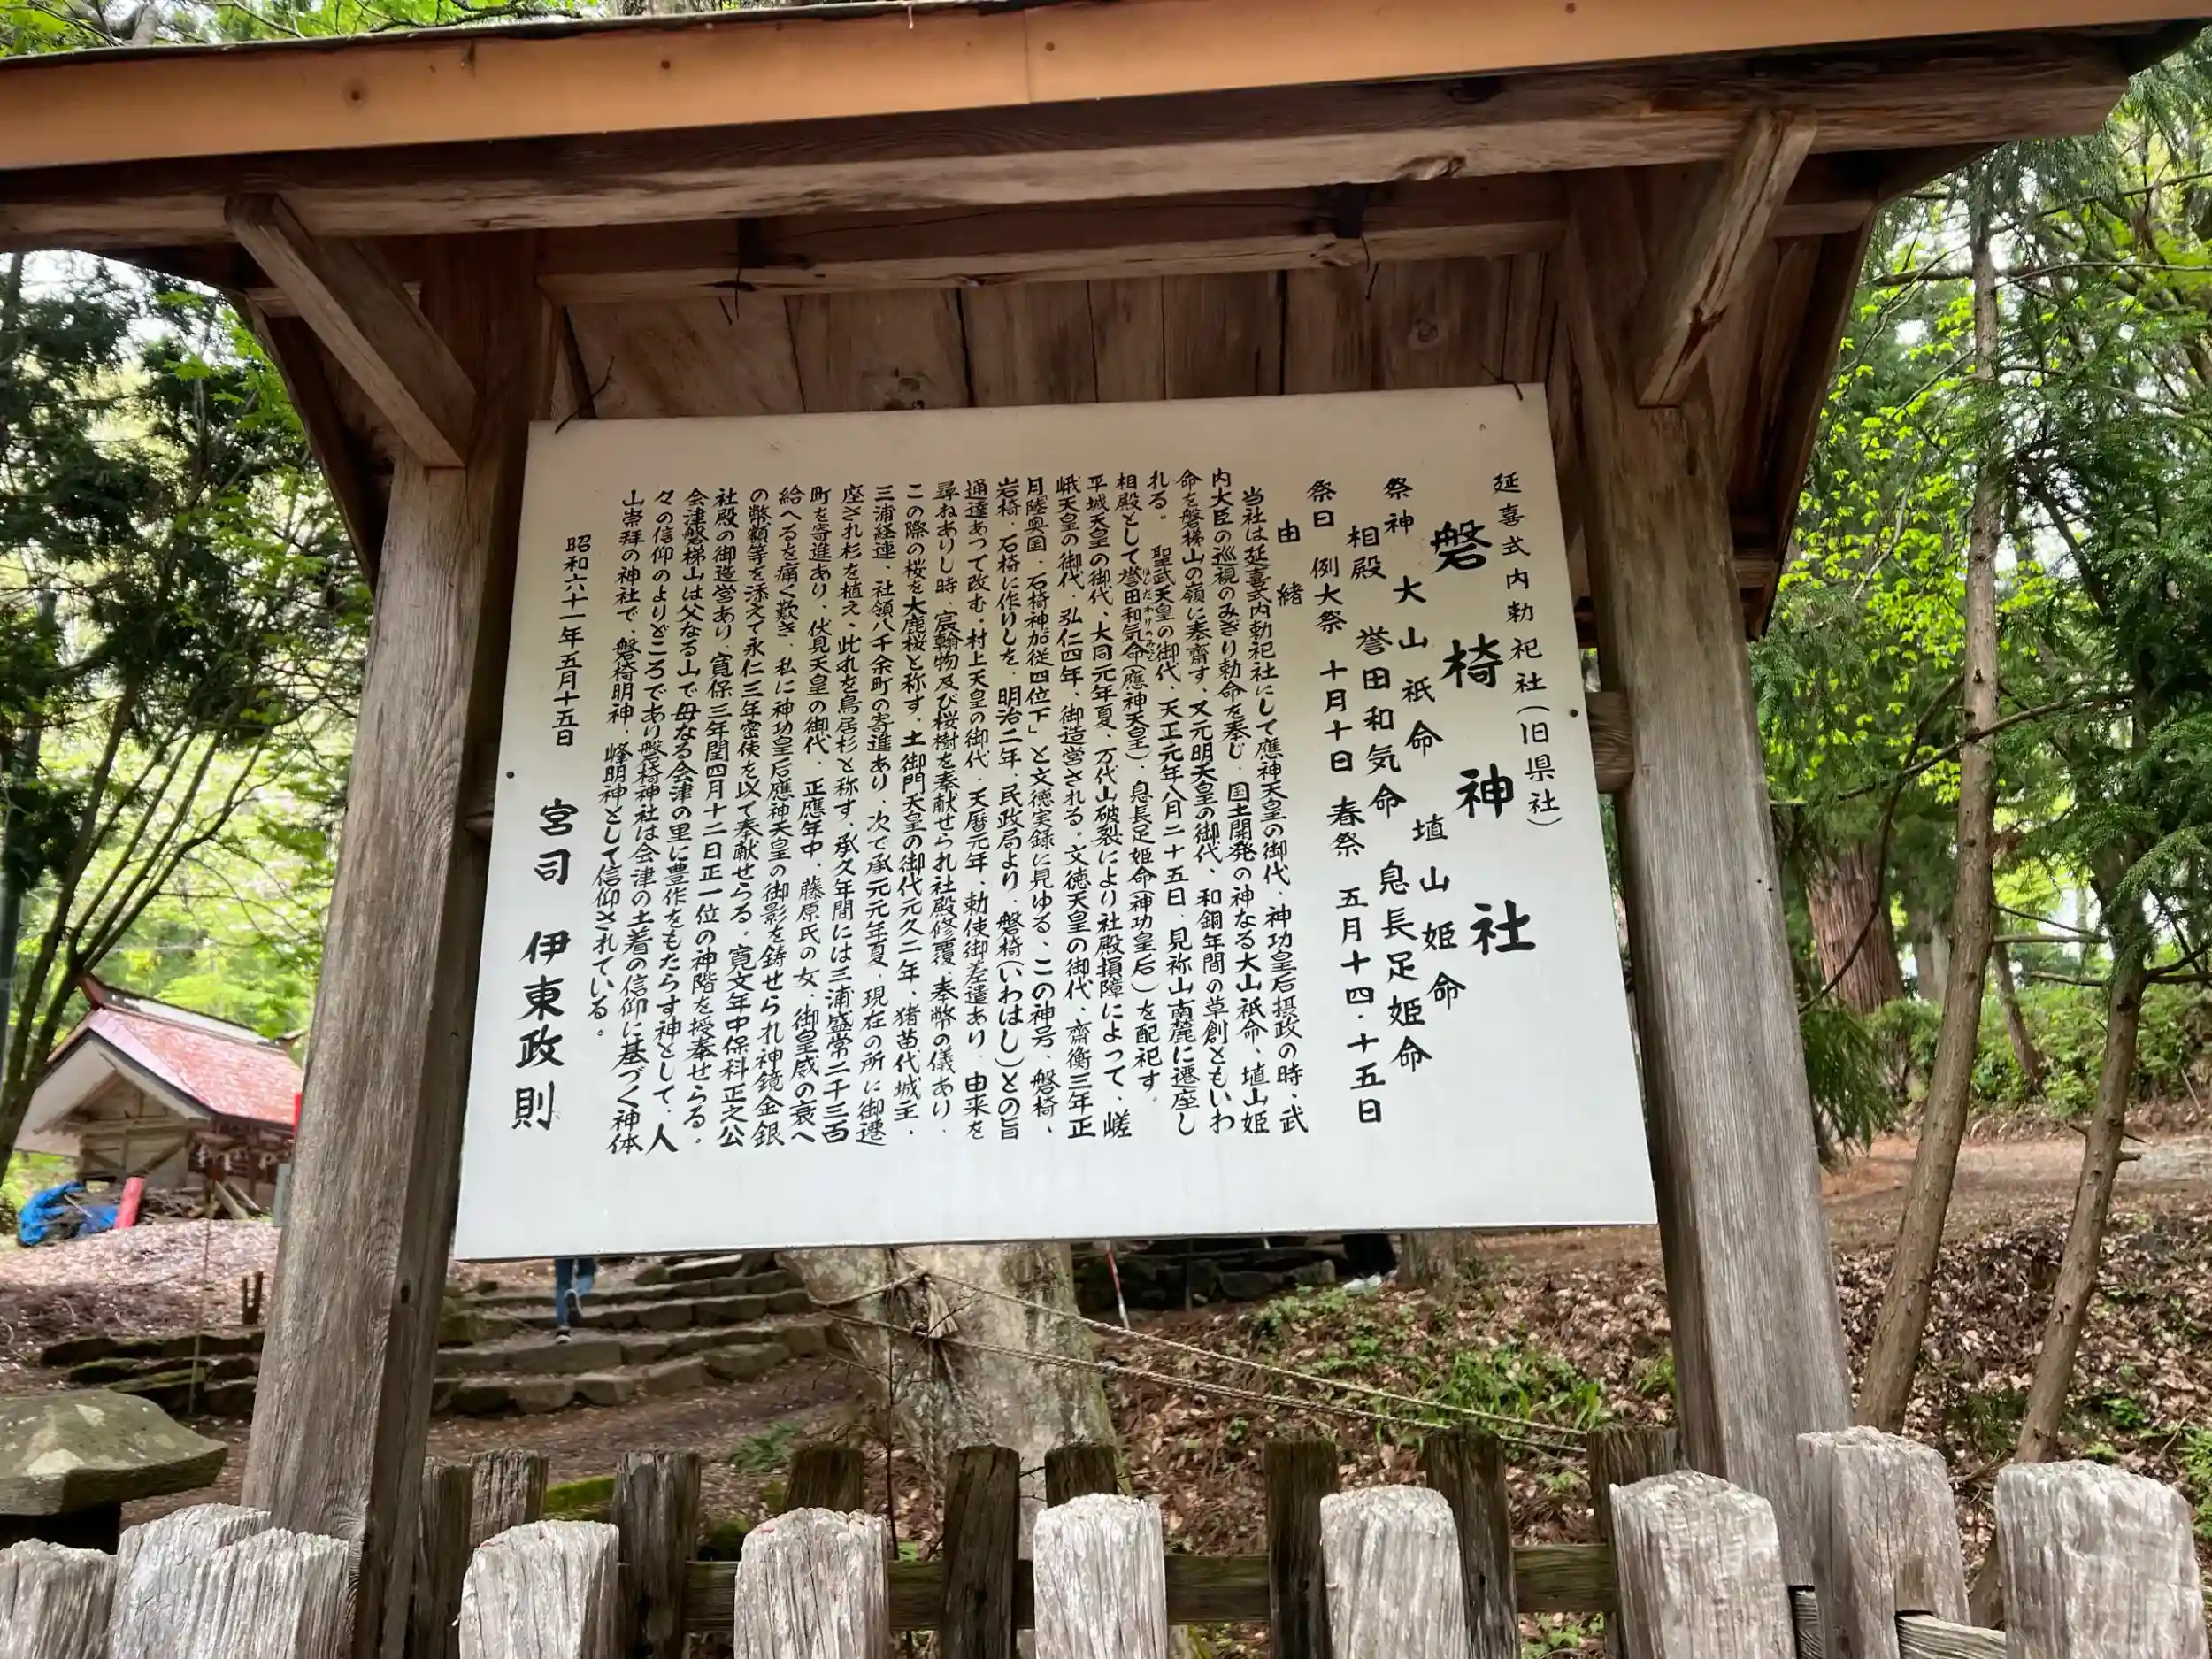 延喜式内勅祀社(旧県社)
磐椅神社
祭神 大山祇命 埴山姫命
相殿 誉田和気命 息長足姫命
祭日 例大祭 十月十日 春祭 五月十四・十五日
由緒
当社は延喜式内勅祀社にして應神天皇の御代、神功皇后摂政の時、武
内大臣の巡視のみぎり勅命を奉じ、国土開発の神なる大山祇命、埴山姫
命を磐梯山の嶺に奉齋す、又元明天皇の御代、和銅年間の草創ともいわ
れる。 聖武天皇の御代、天正元年八月二十五日、見祢山南麓に遷座し
相殿として誉田和気命(應神天皇)、息長足姫命(神功皇后)を配祀す。
ほんだわけのみこと
平城天皇の御代、大同元年夏、万代山破裂により社殿損障によって、嵯
峨天皇の御代、弘仁四年、御造営される。文徳天皇の御代、齋衡三年正
月「陸奥国、石椅神加従四位下」と文徳実録に見ゆる、この神号、磐椅、
岩椅、石椅に作りしを、明治二年、民政局より、磐椅(いわはし)との旨
通達あって改む。村上天皇の御代、天暦元年、勅使御差遣あり、由来を
尋ねありし時、宸翰物及び桜樹を奉献せられ社殿修覆、奉幣の儀あり、
この際の桜を大鹿桜と称す。土御門天皇の御代元久二年、猪苗代城主、
三浦経連、社領八千余町の寄進あり、次で承元元年夏、現在の所に御遷
座され杉を植え、此れを鳥居杉と称す。承久年間には三浦盛常二千三百
町を寄進あり、伏見天皇の御代、正應年中、藤原氏の女、御皇威の衰へ
給へるを痛く歎き、私に神功皇后應神天皇の御影を鋳せられ神鏡金銀
の幣額等を添えて永仁三年密使を以て奉献せらる。寛文年中保科正之公
社殿の御造営あり、寛保三年閏四月十二日正一位の神階を授奉せらる。
会津磐梯山は父なる山で母なる会津の里に豊作をもたらす神として、人
々の信仰のよりどころであり磐椅神社は会津の土着の信仰に基づく神体
山崇拝の神社で、磐椅明神、峰明神として信仰されている。
昭和六十一年五月十五日 宮司 伊東政則